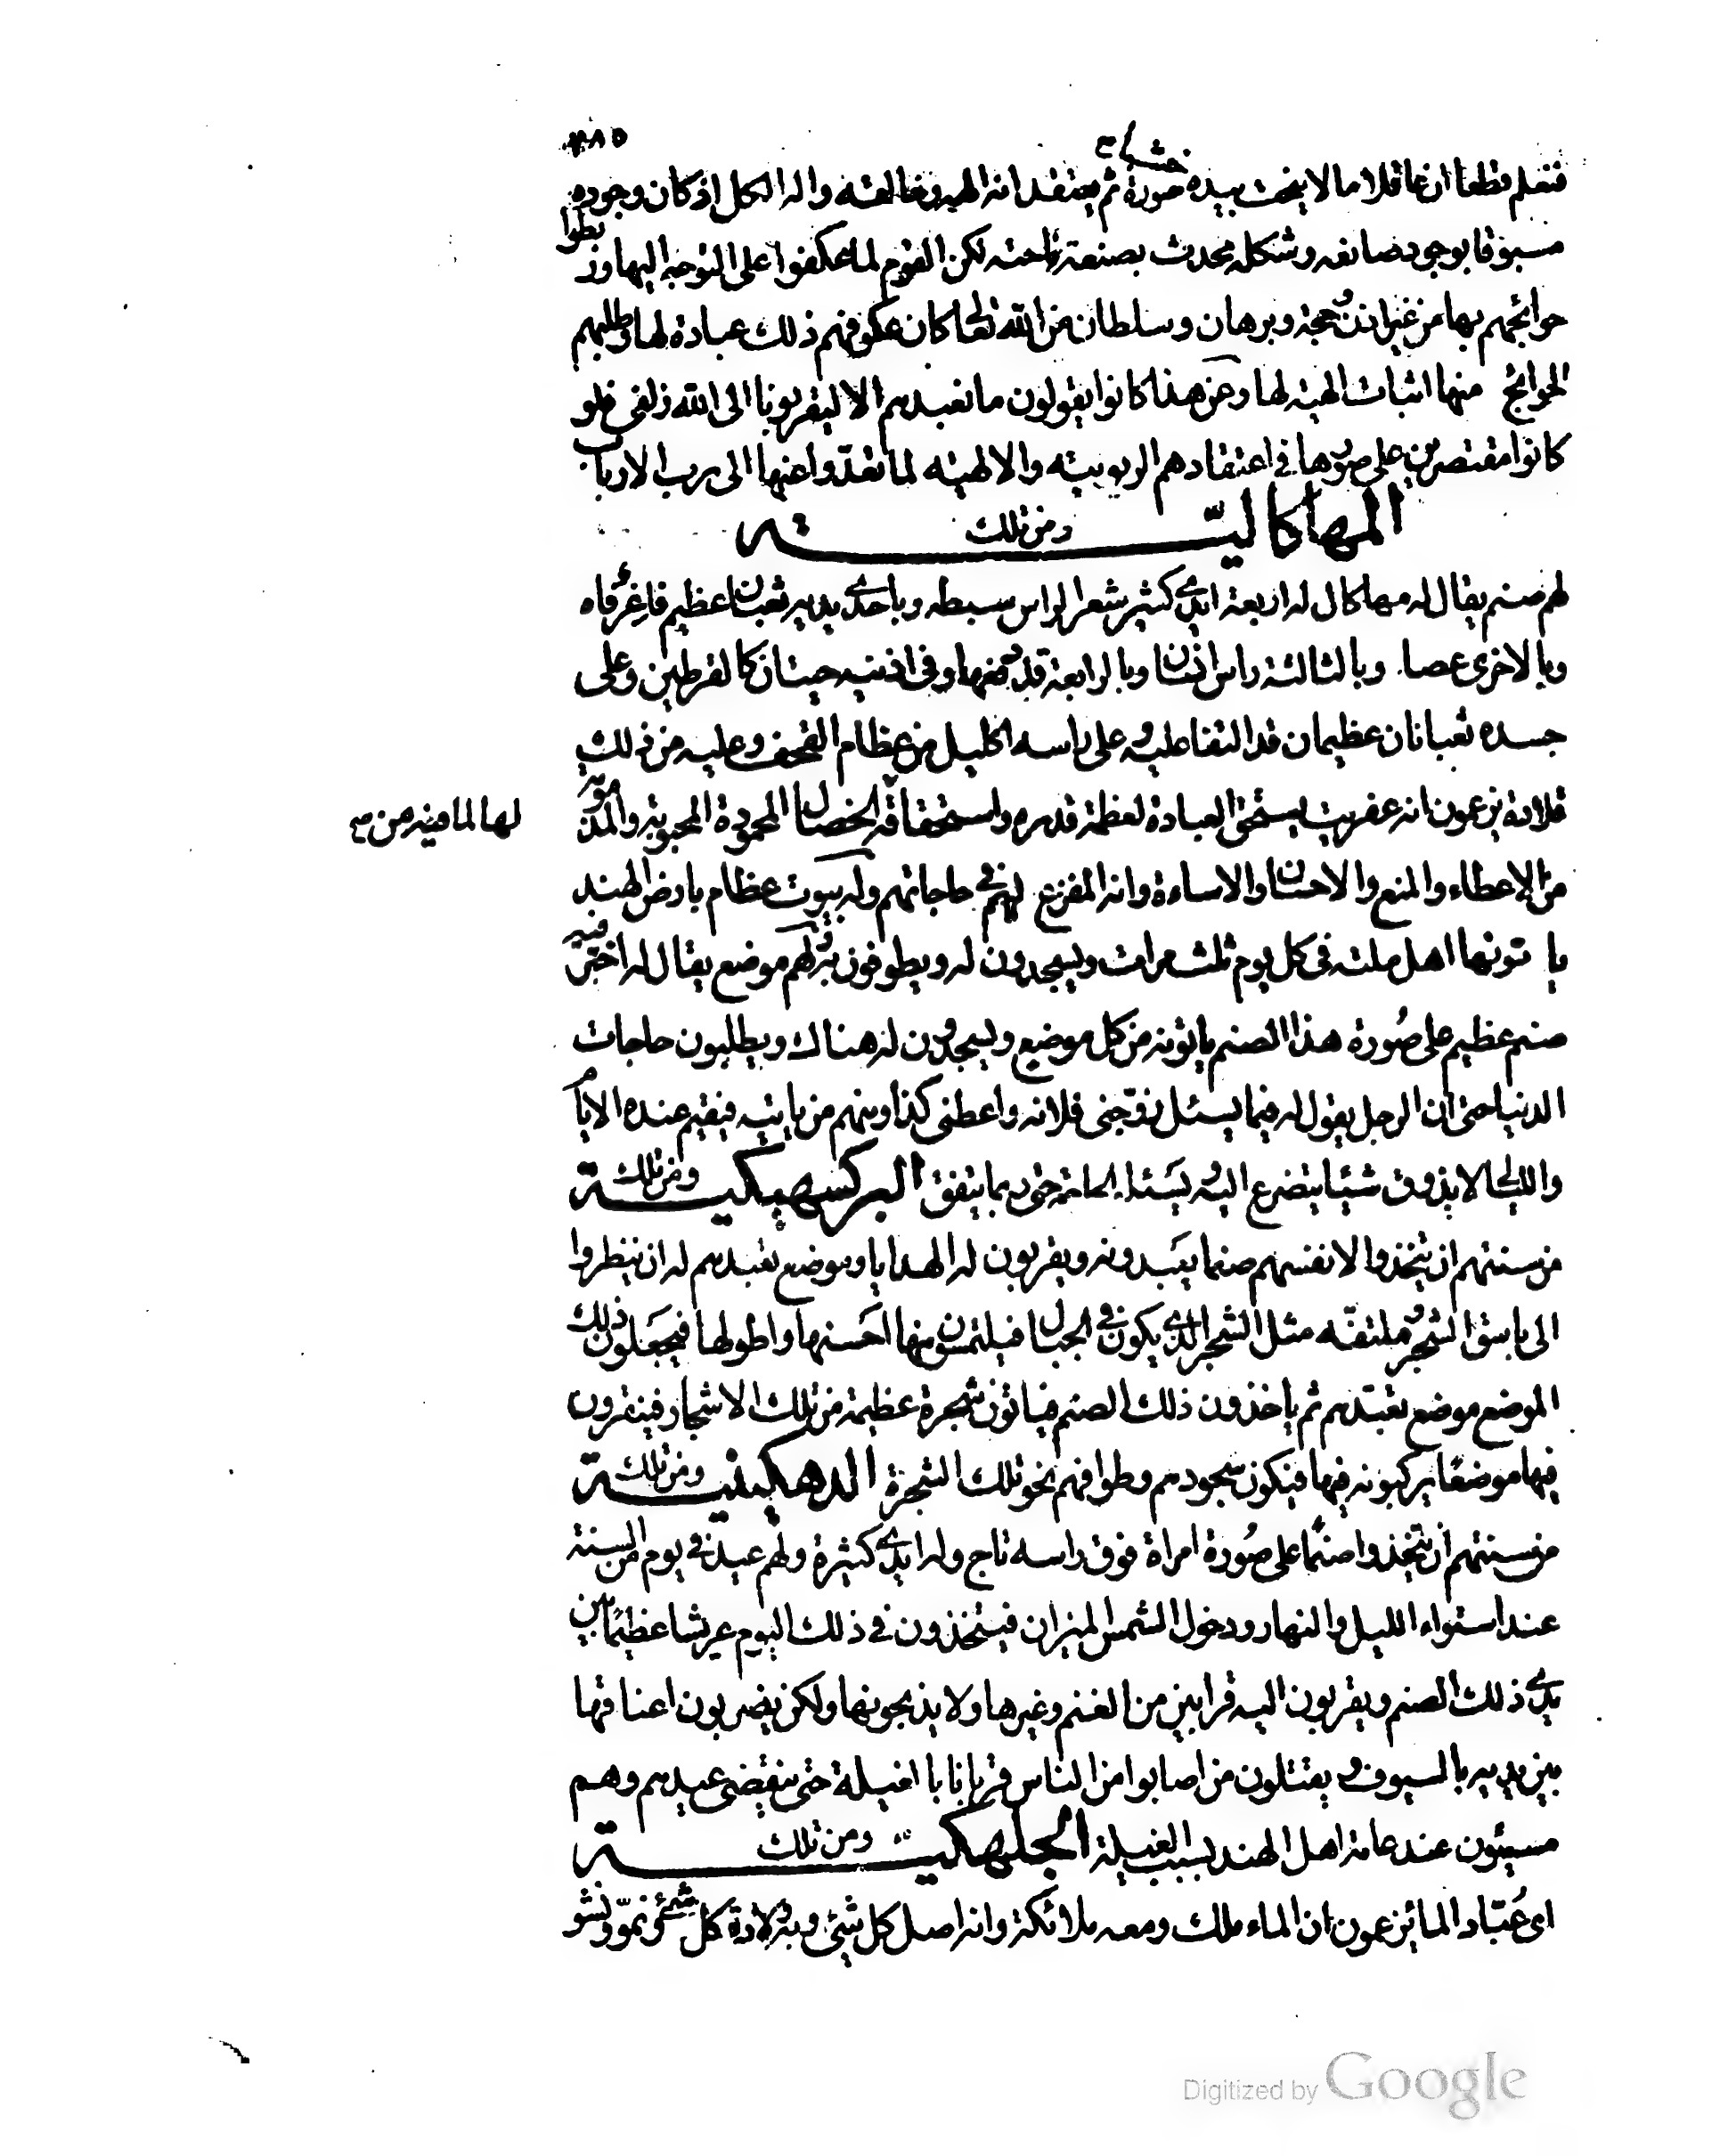 ٤٨٥
خشبا ح
فنعلم قطعا ان عاقلا ما لا ينحت بيده صورة ثم يعتقد انه الهه وخالقه واله الكل اذ كان وجوده
مسبوقا بوجود صانعه وشكله يحدث بصنعة ناحته لكن القوم لما عكفوا على التوجه اليها وربطوا
حوائجهم بها من غير اذن وحجة وبرهان وسلطان من الله تعالى كان عكوفهم ذلك عبادة لها وطلبهم
الحوائج منها اثبات الهية لها وعن هذا كانوا يقولون ما نعبدهم الا ليقربونا الى الله زلفى فلو
كانوا مقتصرين على صورها في اعتقادهم الربوبية والالهية لما تعدّوا عنها الى رب الارباب
ومن تلك المهاكاليّة
لهم صنم يقال له مهاكال له اربعة ايدي كثير شعر الراس سبطه وباحدى يديه ثعبان عظيم فاغر فاه
وبالاخرى عصا وبالثالثة راس انسان وبالرابعة قد دفعها وفي اذنيه حيتان كالقرطين وعلى
جسده ثعبانان عظيمان قد التفا عليه وعلى راسه اكليل من عظام القحف وعليه من ذلك
قلادة يزعمون انه عفريت يستحق العبادة لعظمة قدره واستحقاقه الخصال المحمودة المحبوبة والمذمومة
لها لما فيه من ح
من الاعطاء والمنع والاحسان والاساءة وانه المفزع لهم في حاجاتهم وله بيوت عظام بارض الهند
يا تونها اهل ملته في كل يوم ثلث مرات ويسجدون له ويطوفون به ولهم موضع يقال له اختر فيه
صنم عظيم على صُورة هذا الصنم ياتونه من كل موضع ويسجدون له هناك ويطلبون حاجات
الدنيا حتى ان الرجل يقول له فيما يسئل زوّجني فلانة واعطني كذا ومنهم من ياتيه فيقيم عنده الايام
والليالي لا يذوق شيئا يتضرع اليه ويسئله الحاجة حتى ربما يتفق ومن تلك البركسهيكية
من سنتهم ان يتخذوا لانفسهم صنما يعبدونه ويقربون له الهدايا وموضع تعبدهم له ان ينظروا
الى باسق الشجر وملتفّه مثل الشجر الذي يكون في الجبال فيلتمسون منها احسنها واطولها فيجعلون ذلك
الموضع موضع تعبّدهم ثم ياخذون ذلك الصنم فياتون شجرة عظيمة من تلك الاشجار فينقرون
فيها موضعا يركبونه فيها فيكون سجودهم وطوافهم نحو تلك الشجرة ومن تلك الدهكينية
من سنتهم ان يتخذوا صنما على صُورة امراة فوق راسه تاج وله ايدي كثيرة ولهم عيد في يوم من السنة
عند استواء الليل والنهار ودخول الشمس الميزان فيتخذون في ذلك اليوم عريشا عظيما بين
يدي ذلك الصنم ويقربون اليه قرابين من الغنم وغيرها ولا يذبحونها ولكن يضربون اعناقها
بين يديه بالسيوف ويقتلون من اصابوا من الناس قربانا با الغيلة حتى ينقضي عيدهم وهم
مسيئون عند عامة اهل الهند بسبب الغيلة ومن تلك الجلهكية
اى عُبّاد الما يزعمون ان الماء ملك ومعه ملائكة وانه اصل كل شئ وبه ولادة كل شئ ونموّ ونشو
Digitized by Google